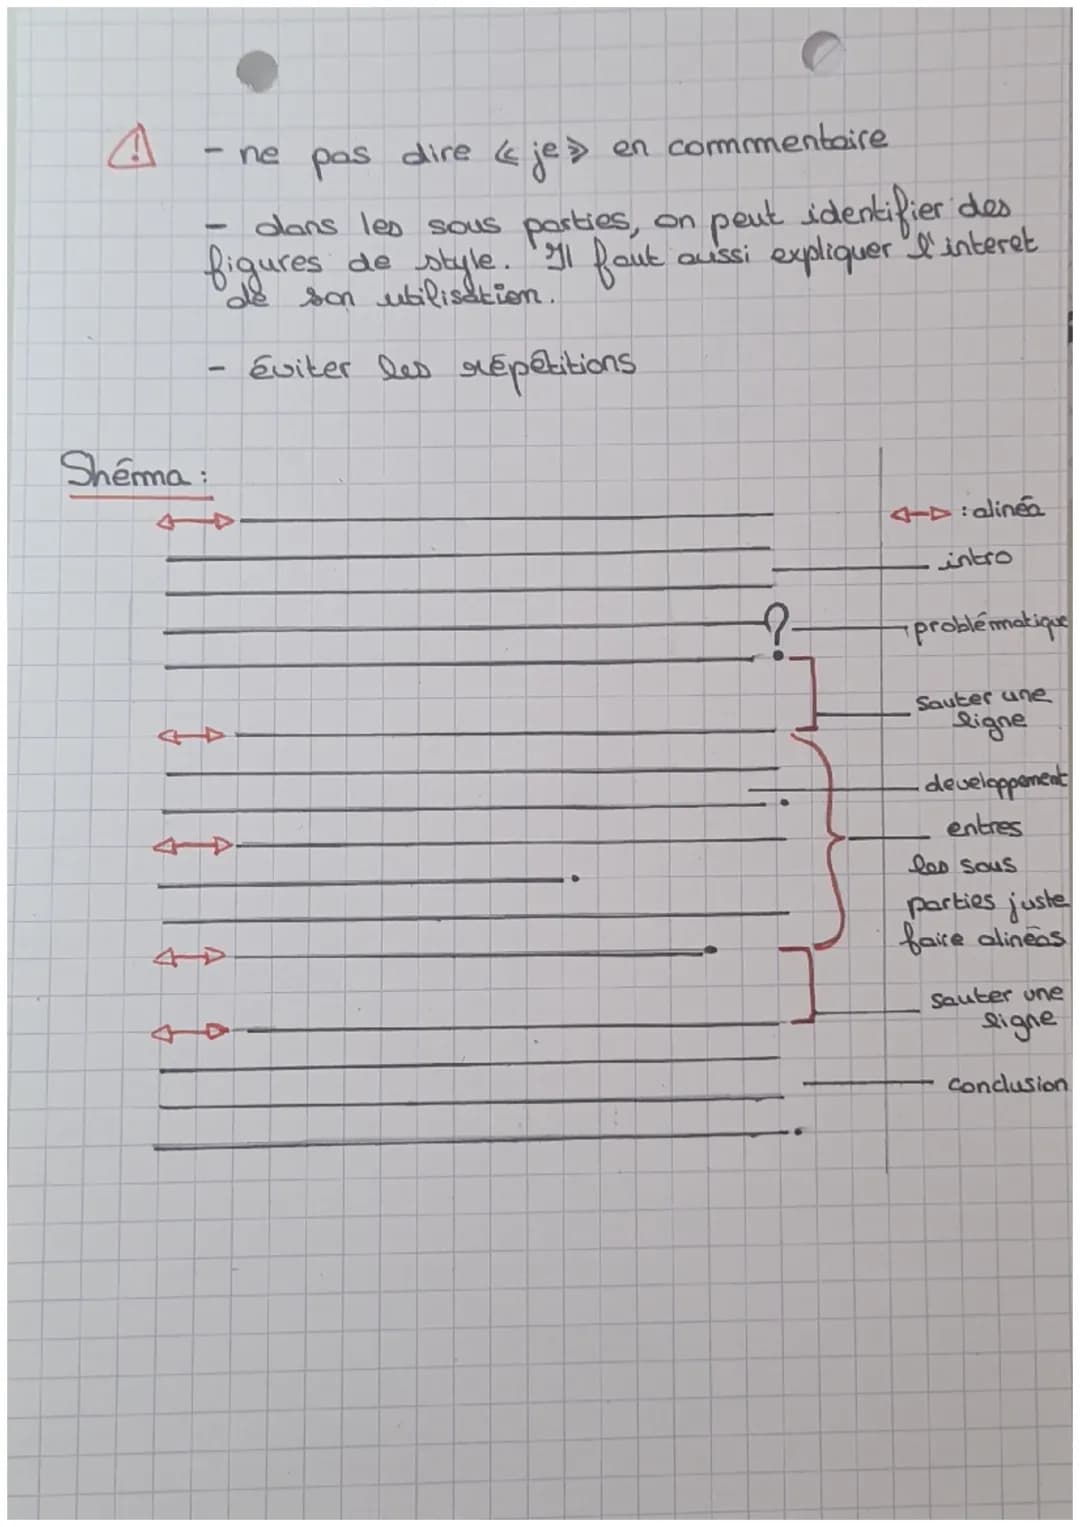 - ne pas dire « je » en commmentaire
- dans les sous parties, on peut identifier des
figures de style. Il faut aussi expliquer l'interet
de son utilisation.
- éviter les répétitions
Shéma :
: alinéa
intro
?
problématique
Sauter une
ligne
developpement
entres
les sous
parties juste
faire alinéas
sauter une
ligne
conclusion